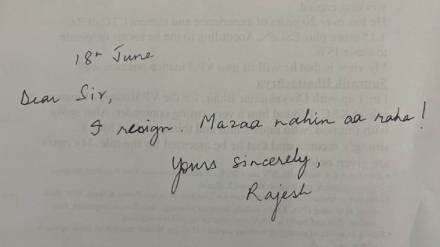 18th June
Dear Sir,
I resign. Mazaa nahin aa raha!
Yours sincerely,
Rajesh